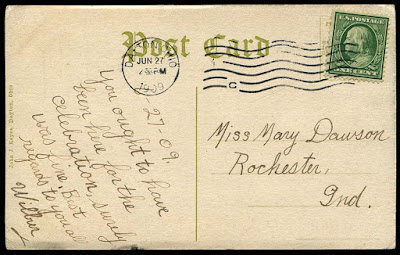 Post Card
DAYTON, OHIO
JUN 27
PM
1909
C
U.S. POSTAGE
ONE CENT
6-27-09.
You ought to have
been here for the
celebration, surely
was fine. Best
regards to you all
Wilbur
Miss Mary Dawson
Rochester,
Ind.